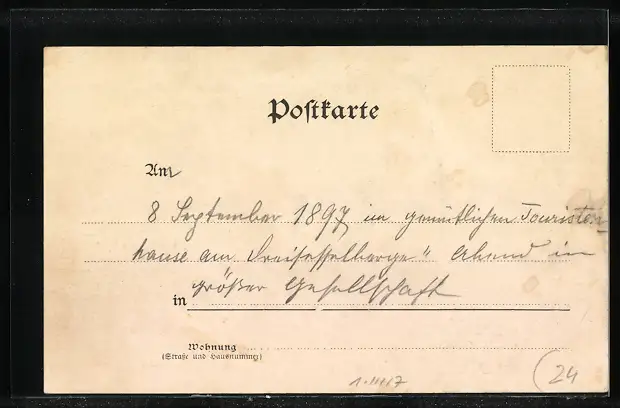 Postkarte
An
8 September 1897 im gemütlichen Touristen-
hause am Dreisesselberge" Abend in
größer Gesellschaft
in
Wohnung
(Straße und Hausnummer)
(24